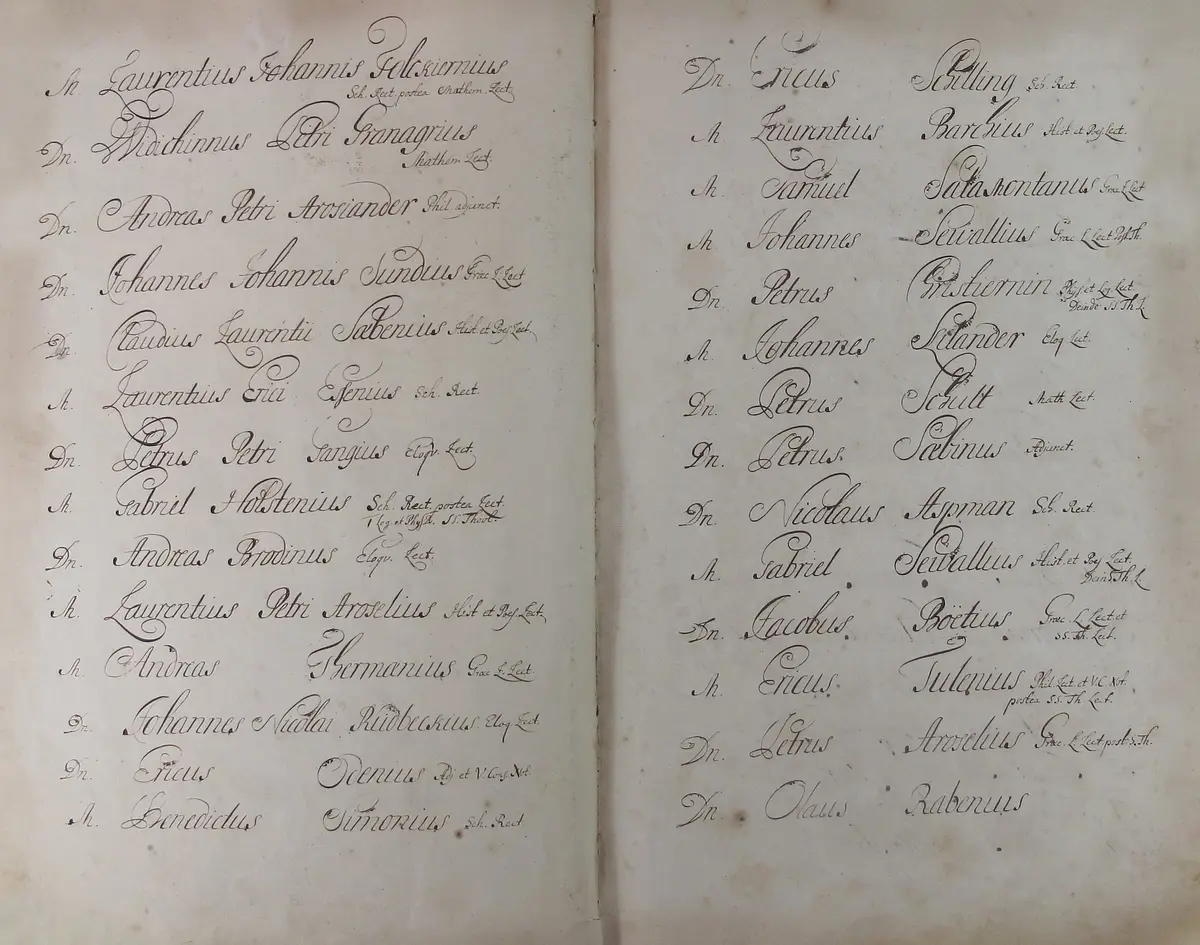 M. Laurentius Johannis Folckiernius
Sch. Rect. postea Mathem. Lect.
Dn. Widichinnus Petri Granagrius
Mathem. Lect.
Dn. Andreas Petri Arosiander Phil. adjunct.
Dn. Johannes Johannis Sundius Græc. L. Lect
Dn. Claudius Laurentii Sabenius Hist. et Poes. Lect.
M. Laurentius Erici Essenius Sch. Rect.
Dn. Petrus Petri Gangius Eloqv. Lect.
M. Gabriel Holstenius Sch. Rect. postea Lect.
Log. et Phys. SS. Theol.
Dn. Andreas Brodinus Eloqv. Lect.
M. Laurentius Petri Aroselius Hist. et Poes. Lect.
M. Andreas Thermænius Græc. L. Lect.
Dn. Johannes Nicolai Rudbeckius Eloq. Lect.
Dn. Ericus Odenius Adj. et V. Cons. Not.
M. Benedictus Simonius Sch. Rect.
Dn. Ericus Schilling Sch. Rect.
M. Laurentius Barchius Hist. et Poes. Lect.
M. Samuel Salamontanus Græc. L. Lect
M. Johannes Sewallius Græc. L. Lect. Post. Th.
Dn. Petrus Christiernin Phys. et Log. Lect.
Deinde SS. Th. L.
M. Johannes Selander Eloq. Lect.
Dn. Petrus Schult Math. Lect.
Dn. Petrus Sæbinus Adjunct.
Dn. Nicolaus Aspman Sch. Rect.
M. Gabriel Sewallius Hist. et Poes. Lect.
Dein S. Th. L.
Dn. Jacobus Boëtius Græc. L. Lect. et
SS. Th. Lect.
M. Ericus Julenius Phil. Lect. et V. C. Not.
postea SS. Th. Lect.
Dn. Petrus Aroselius Græc. L. Lect. post. S. Th.
Dn. Olaus Rabenius